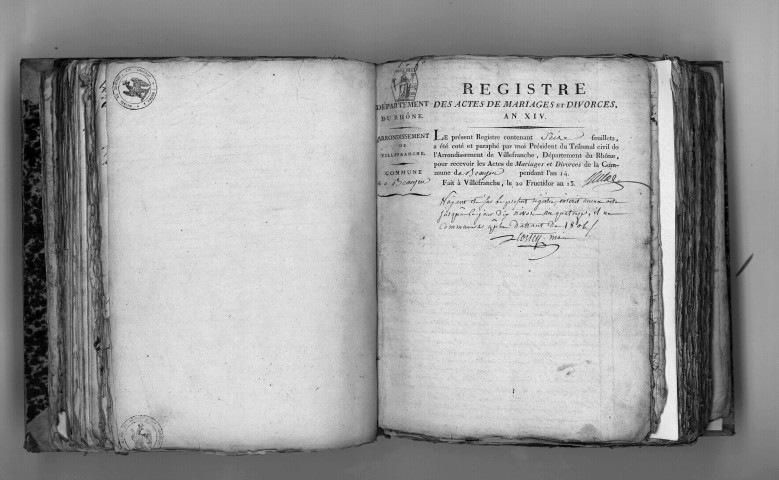 DÉPARTEMENT
DU RHÔNE.
ARRONDISSEMENT
DE
VILLEFRANCHE.
COMMUNE
REGISTRE
DES ACTES DE MARIAGES ET DIVORCES,
AN XIV.
LE présent Registre contenant Seize feuillets,
a été coté et paraphé par moi Président du Tribunal civil de
l'Arrondissement de Villefranche, Département du Rhône,
pour recevoir les Actes de Mariages et Divorces de la Com-
mune de pendant l'an 14.
Fait à Villefranche, le 20 Fructidor an 13.
N'ayant été sur le present registre inscrit aucun acte
jusqu'à ce jour dix nivose an quatorze, il ne